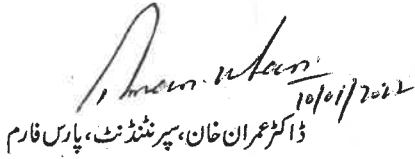 Imran Khan
10/01/2022
ڈاکٹر عمران خان، سپرنٹنڈنٹ، پارس فارم